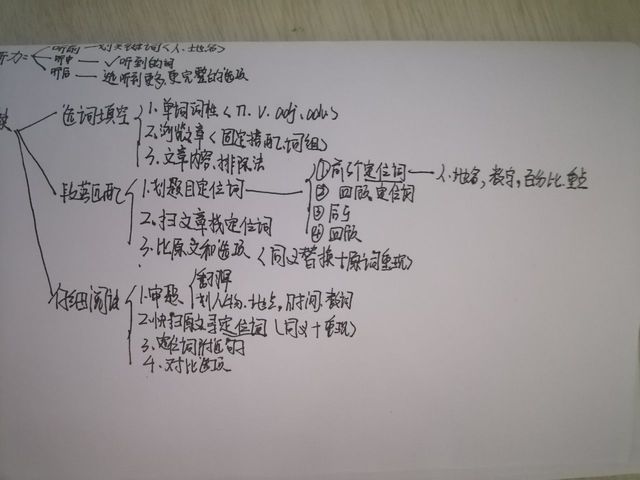 听前 — 划关键词<人、地名>
听力= 听中 — ✓听到的词
听后 — 选听到更多,更完整的选项
选词填空 1.单词词性<n. v. adj. adv.>
2.浏览文章<固定搭配、词组>
3.文章内容、排除法
段落匹配 1.划题目定位词 ①前5个定位词 — 人.地名,数字,百分比.重点
② 回版、定位词
2.扫文章找定位词 ③后5
④回版
3.比原文和选项<同义替换+原词重现>
仔细阅读 1.审题 翻译
划人物、地点,时间、数词
2.快扫原文寻定位词(同义+重现)
3.定位词附近句子
4.对比选项